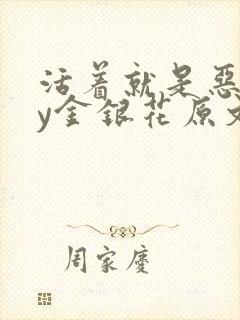 活着就是恶
y金银花原文
周家庆